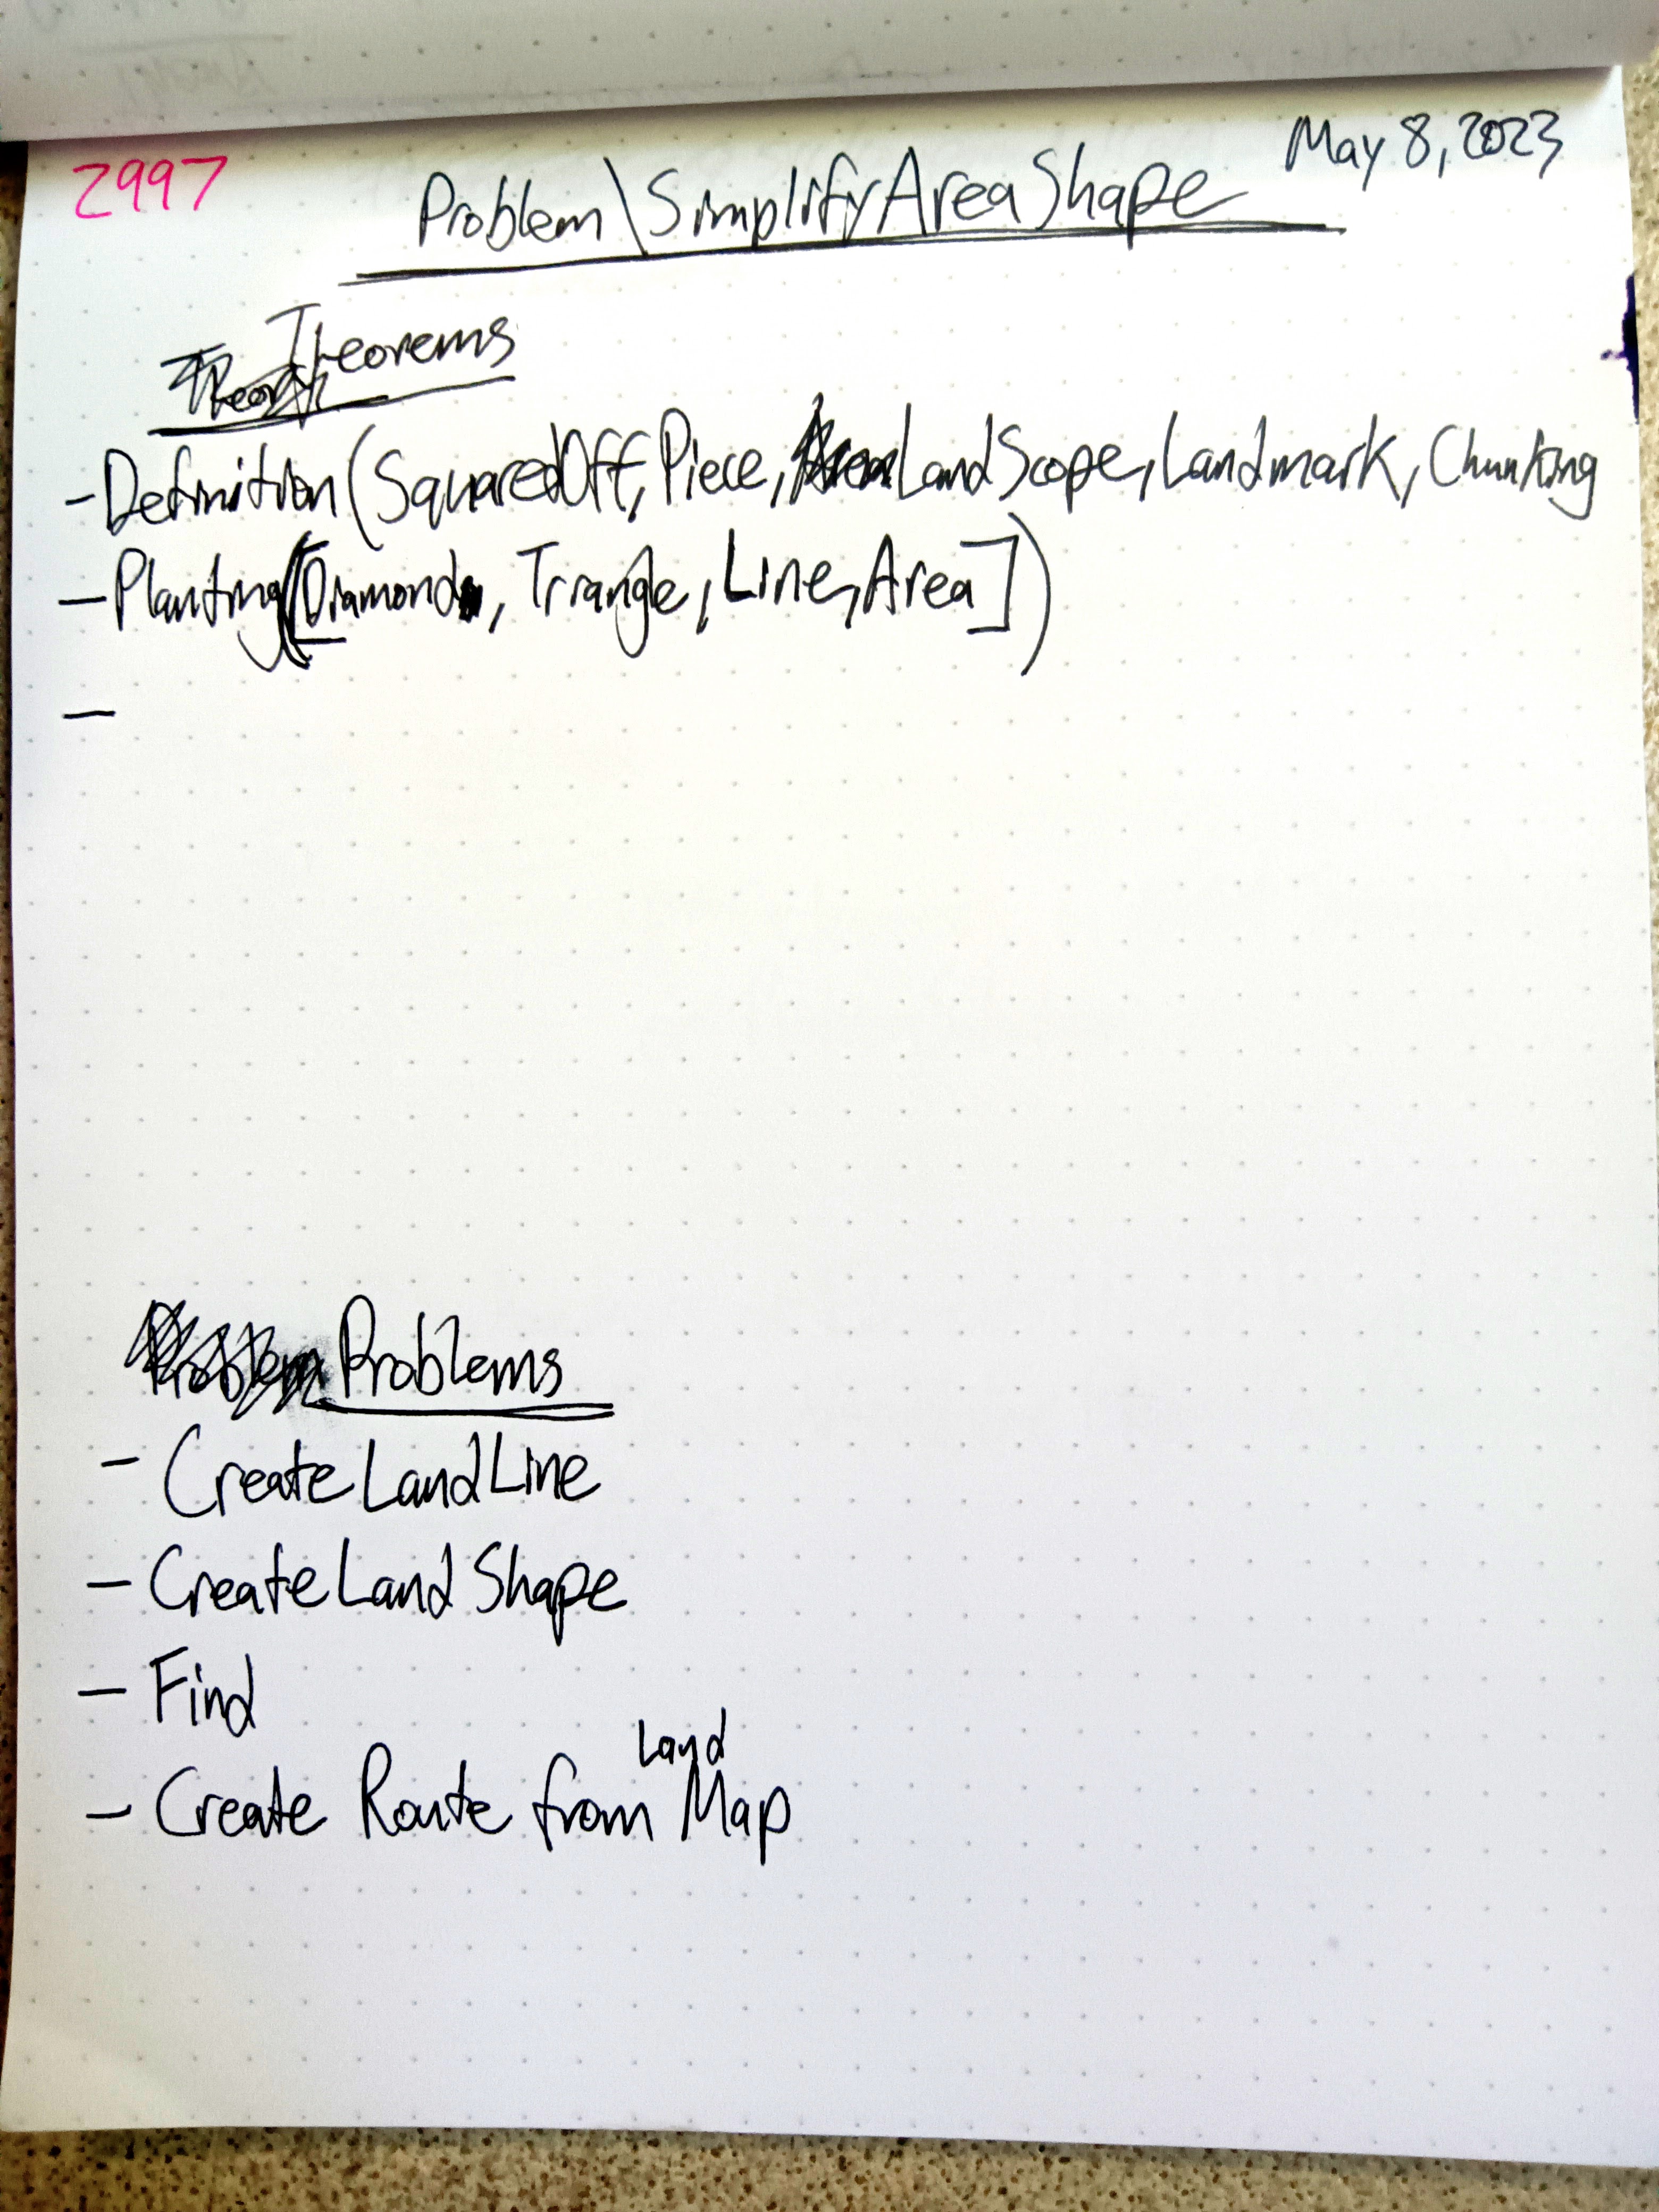 2997
May 8, 2023
Problem\SimplifyAreaShape
Theorems
- Definition(SquaredOff, Piece, LandScope, Landmark, Chunking
- Planting([Diamond, Triangle, Line, Area])
-
Problems
- CreateLandLine
- CreateLandShape
- Find
- Create Route from Land Map